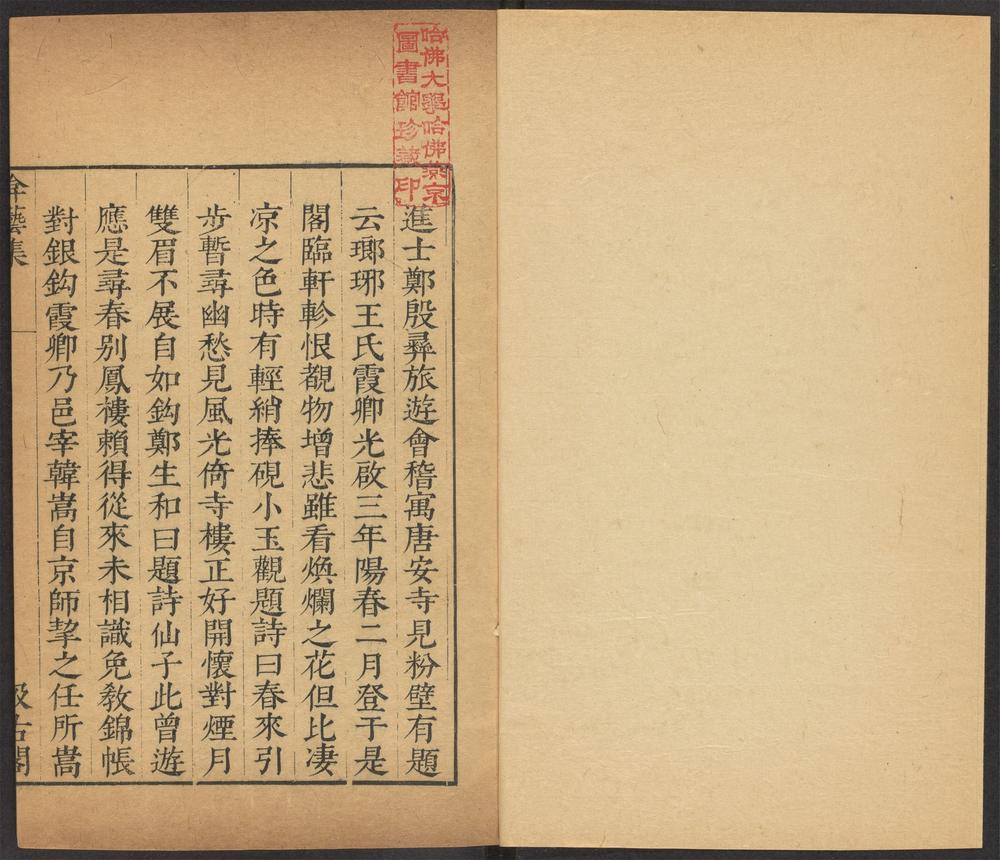 哈佛大學哈佛燕京
圖書館珍藏印
進士鄭殷彝旅遊會稽寓唐安寺見粉壁有題
云瑯琊王氏霞卿光啟三年陽春二月登于是
閣臨軒軫恨覩物增悲雖看煥爛之花但比凄
凉之色時有輕綃捧硯小玉觀題詩曰春來引
步暫尋幽愁見風光倚寺樓正好開懷對煙月
雙眉不展自如鈎鄭生和曰題詩仙子此曾遊
應是尋春别鳳樓賴得從來未相識免教錦帳
對銀鈎霞卿乃邑宰韓嵩自京師挈之任所嵩
集
汲古閣